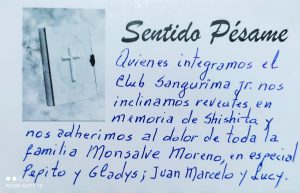 Sentido Pésame
Quienes integramos el
Club Sangurima Jr. nos
inclinamos reveentes en
memoria de Shishita y
nos adherimos al dolor de toda la
familia Monsalve Moreno, en especial
Pepito y Gladys; Juan Marcelo y Lucy.